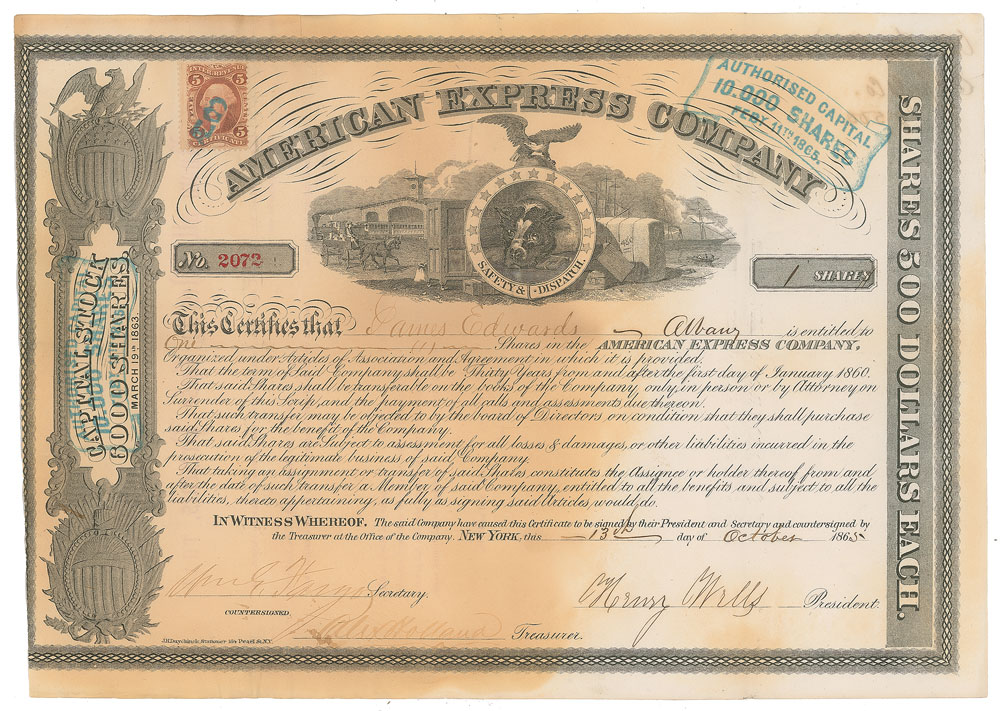 INTER. REVENUE
5 5
FIVE CENTS
CERTIFICATE
5 5
AMERICAN EXPRESS COMPANY
AUTHORISED CAPITAL
10.000 SHARES
FEBY 11TH 1865.
SAFETY & DISPATCH.
No. 2072
1 SHARES
CAPITAL STOCK
30000 SHARES
MARCH 19th 1863.
SHARES 500 DOLLARS EACH.
This Certifies that James Edwards Albany is entitled to
One Shares in the AMERICAN EXPRESS COMPANY,
Organized under Articles of Association and Agreement in which it is provided.
That the term of Said Company shall be Thirty Years from and after the first day of January 1860.
That said Shares shall be transferable on the books of the Company only in person or by Attorney on
Surrender of this Scrip, and the payment of all calls and assessments due thereon.
That such transfer may be objected to by the board of Directors on condition that they shall purchase
said Shares for the benefit of the Company.
That said Shares are Subject to assessment for all losses & damages, or other liabilities incurred in the
prosecution of the legitimate business of said Company.
That taking an assignment or transfer of said Shares constitutes the Assignee or holder thereof from and
after the date of such transfer a Member of said Company, entitled to all the benefits and subject to all the
liabilities, thereto appertaining, as fully as signing said Articles would do.
IN WITNESS WHEREOF. The said Company have caused this Certificate to be signed by their President and Secretary and countersigned by
the Treasurer at the Office of the Company. NEW YORK, this 13th day of October 1865
Wm G Fargo Secretary. Henry Wells President.
COUNTERSIGNED.
Alex Holland Treasurer.
J.H. Duyckinck, Stationer 164 Pearl St. N.Y.